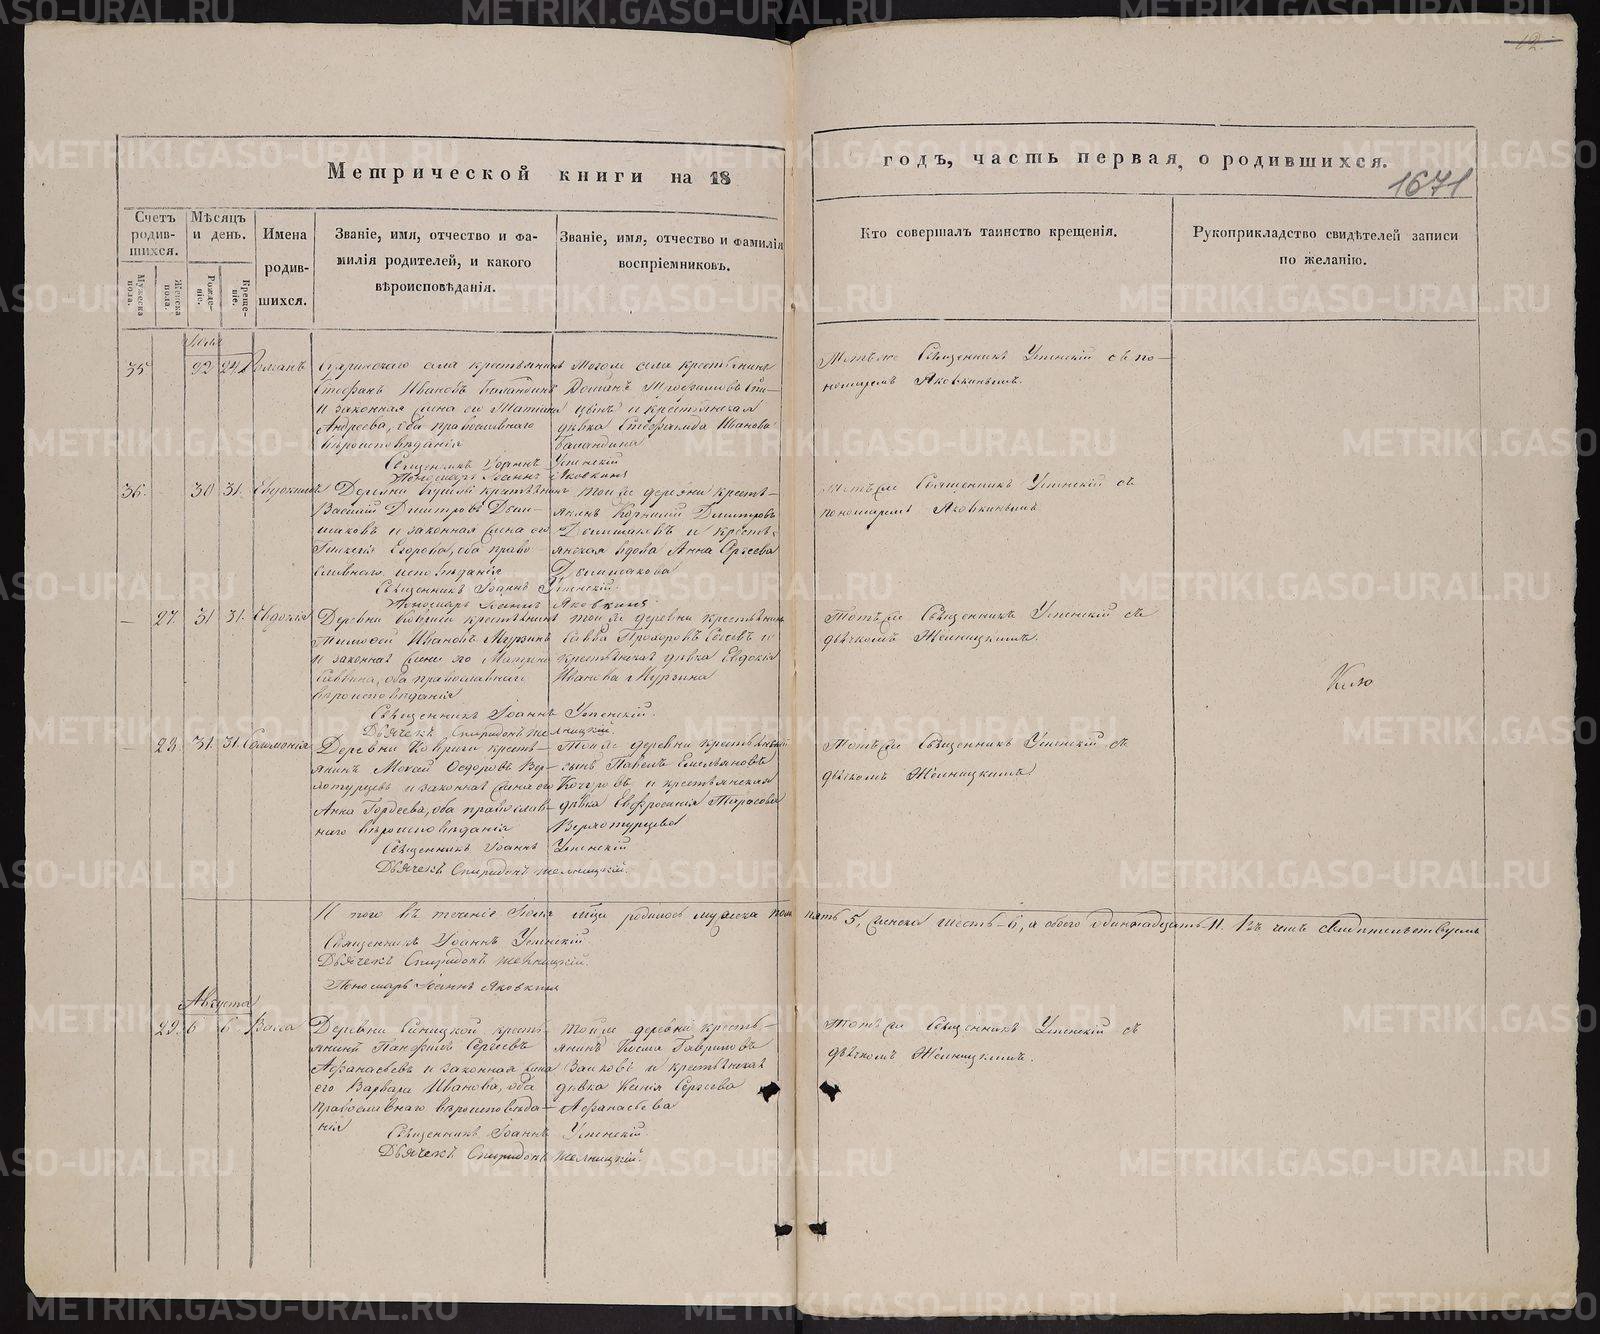 12.
Метрической книги на 18
годъ, часть первая, о родившихся.
1671
Счетъ родив-шихся.
Мужеска пола.
Женска пола.
Мѣсяцъ и день.
Рожде-ніе.
Креще-ніе.
Имена родив-шихся.
Званіе, имя, отчество и фа-
милія родителей, и какого
вѣроисповѣданія.
Званіе, имя, отчество и фамилія
воспріемниковъ.
Кто совершалъ таинство крещенія.
Рукоприкладство свидѣтелей записи
по желанію.
Іюля
35 22 24
села крестьянинъ
Стефанъ Ивановъ Баландинъ
и законная жена его Татіана
Андреева, оба православнаго
вѣроисповѣданія
Тогоже села крестьянинъ
и крестьянская
дѣвка Стефанида Иванова
Баландина
Священникъ Іоаннъ Успенскій
Пономарь Іоаннъ Яковкинъ
Тотъ же Священникъ Успенскій съ по-
номаремъ Яковкинымъ.
36. 30 31. Евдокимъ
Деревни крестьянинъ
Василій Дмитровъ
и законная жена его
Егорова, оба право-
славнаго исповѣданія
Тойже деревни кресть-
янинъ Корнилій Дмитровъ
и кресть-
янская вдова Анна Сергеева
Священникъ Іоаннъ Успенскій.
Пономарь Іоаннъ Яковкинъ
Тотъ же Священникъ Успенскій съ
пономаремъ Яковкинымъ.
27. 31 31. Евдокія
Деревни крестьянинъ
Тимофей Ивановъ Мурзинъ
и законная жена его Матрена
Саввина, оба православнаго
вѣроисповѣданія
Тойже деревни крестьянинъ
Савва Прохоровъ и
крестьянская дѣвка Евдокія
Иванова Мурзина
Священникъ Іоаннъ Успенскій.
Дьячекъ Спиридонъ Желницкій.
Тотъ же Священникъ Успенскій съ
дьячкомъ Желницкимъ.
28. 31. 31. Соломонія
Деревни Ковриги кресть-
янинъ Мокей Федоровъ Вер-
хотурцевъ и законная жена его
Анна Гордеева, оба православ-
наго вѣроисповѣданія
Тойже деревни крестьянскій
сынъ Павелъ Емельяновъ
Кочуровъ и крестьянская
дѣвка Евфросинія Тарасова
Верхотурцева
Священникъ Іоаннъ Успенскій
Дьячекъ Спиридонъ Желницкій.
Тотъ же Священникъ Успенскій съ
дьячкомъ Желницкимъ.
Итого въ теченіе Іюля мца родилось мужеска пола пять 5, женска шесть-6, а обоего одиннадцать 11. Въ чемъ свидѣтельствуемъ
Священникъ Іоаннъ Успенскій.
Дьячекъ Спиридонъ Желницкій.
Пономарь Іоаннъ Яковкинъ
Августа
29. 6 6.
Деревни Синицкой кресть-
янинъ Панфилъ Сергеевъ
Афанасьевъ и законная жена
его Варвара Иванова, оба
православнаго вѣроисповѣда-
нія
Тойже деревни кресть-
янинъ Косма Гавриловъ
Заиковъ и крестьянская
дѣвка Ксенія Сергеева
Афанасьева
Священникъ Іоаннъ Успенскій.
Дьячекъ Спиридонъ Желницкій.
Тотъ же Священникъ Успенскій съ
дьячкомъ Желницкимъ.
METRIKI.GASO-URAL.RU